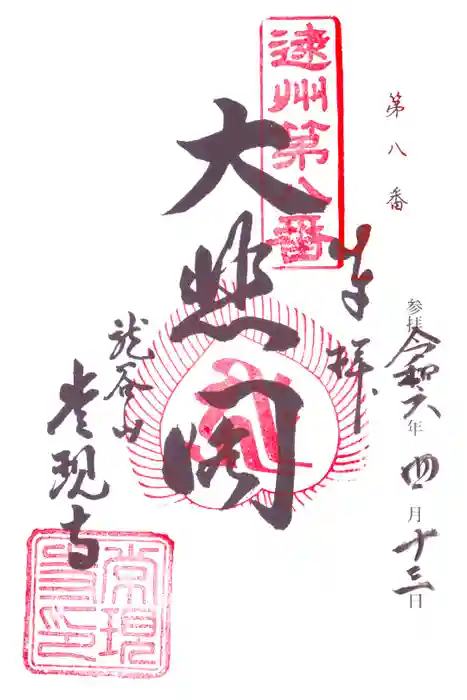 第八番
参拝 令和六年 四月 十三日
奉拝
遠州第八番
大悲閣
龍谷山
常現寺
常現寺印